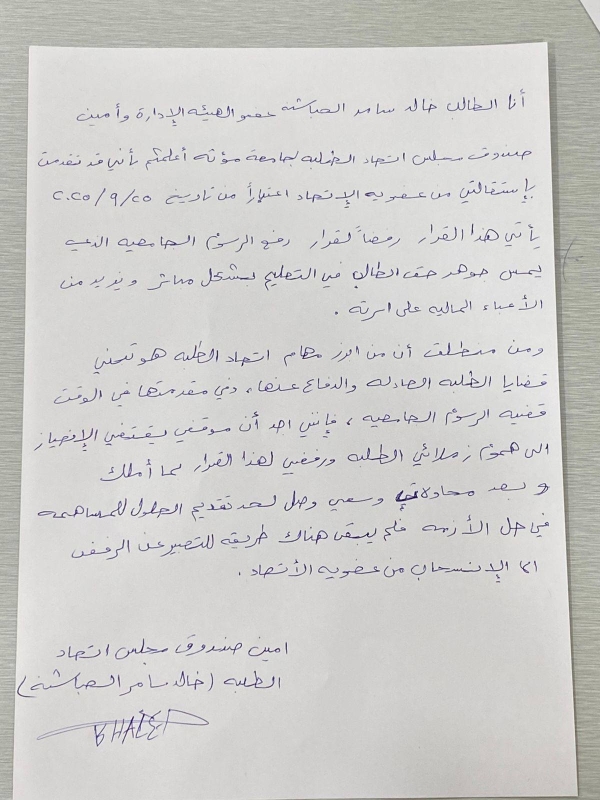 أنا الطالب خالد سامر الصباشنه عضو الهيئه الإدارة وأمين
صندوق مجلس اتحاد الطلبه لجامعة مؤته أعلمكم بأنني قد تقدمت
بإستقالتي من عضويه الإتحاد اعتباراً من تاريخ ٢٠٢٥/٩/٢٥
يأتي هذا القرار رفضاً لقرار رفع الرسوم الجامعيه الذي
يمس جوهر حق الطالب في التعليم بشكل مباشر ويزيد من
الأعباء الماليه على اسرته .
ومن منطلق أن من ابرز مهام اتحاد الطلبه هو تبني
قضايا الطلبه العادله والدفاع عنها، وفي مقدمتها في الوقت
قضيه الرسوم الجامعيه ، فإنني اجد أن موقفي يقتضي الإنحياز
الى هموم زملائي الطلبه ورفضي لهذا القرار بما أملك
و بعد وسعي وصل لحد تقديم الحلول للمساهمه
في حل الأزمه فلم يبقى هناك طريقه للتعبير عن الرفض
الا الإنسحاب من عضويه الأتحاد .
امين صندوق مجلس اتحاد
الطلبه (خالد سامر الصباشنة)
KHALED